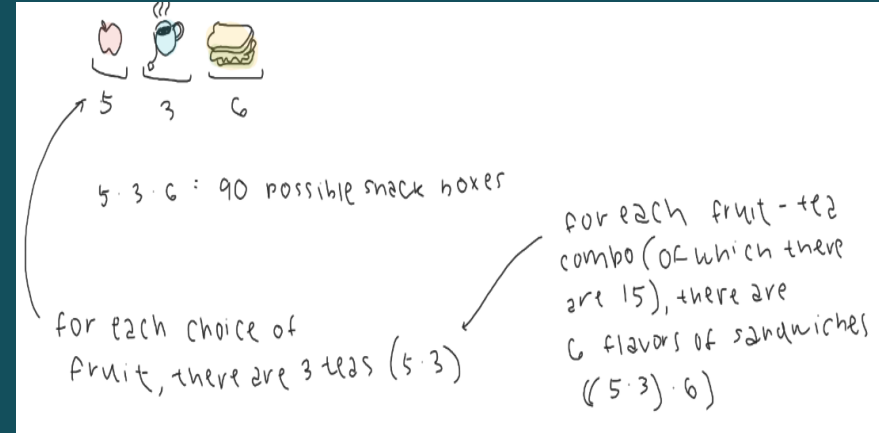 5 3 6
5 · 3 · 6 = 90 possible snack boxes
for each choice of
fruit, there are 3 teas (5·3)
for each fruit-tea
combo (of which there
are 15), there are
6 flavors of sandwiches
((5·3)·6)